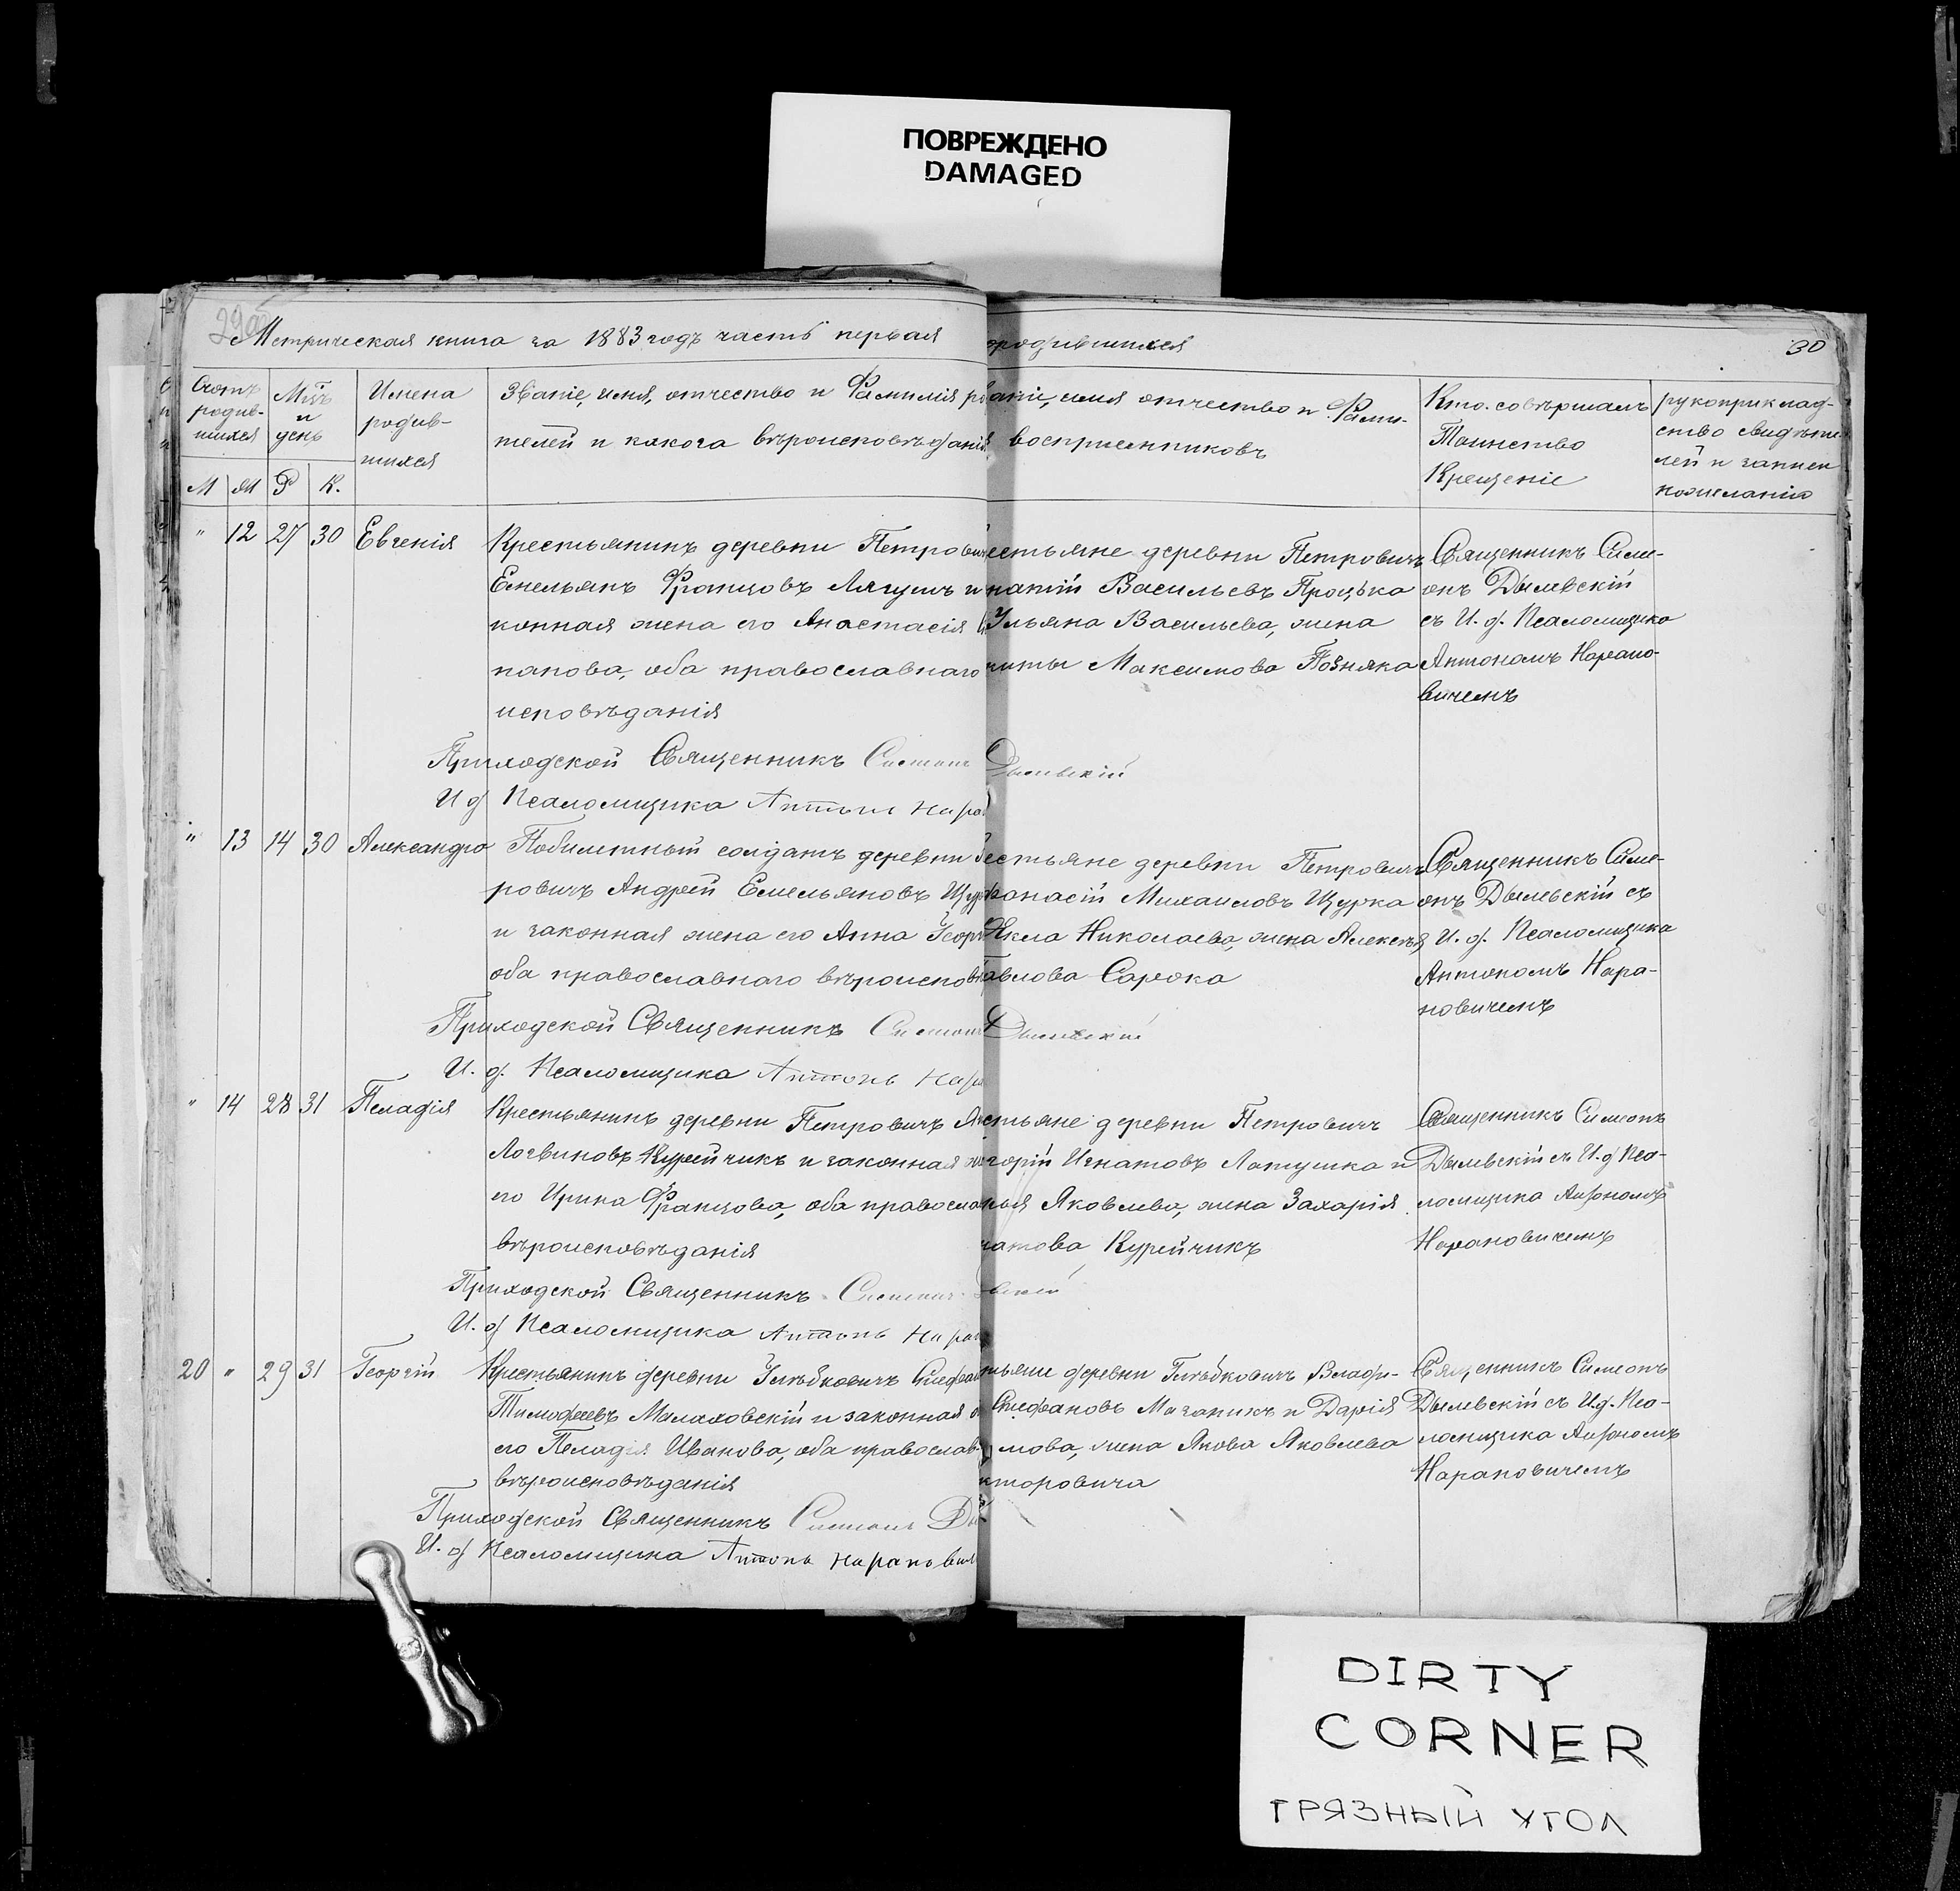 ПОВРЕЖДЕНО
DAMAGED
Метрическая книга за 1883 годъ часть первая
родившихся
30
Счетъ родив-шихся
Мцъ и день
Имена родив-шихся
Званіе, имя, отчество и Фамилія ро
телей и какого вѣроисповѣданія
аніе, имя отчество и Фами-
воспріемниковъ
Кто совершалъ
Таинство
Крещеніе
рукоприклад-
ство свидѣте
лей
М Ж Р К.
" 12 27 30 Евгенія
Крестьянинъ деревни Петрович
Емельянъ Францовъ Лягушъ и
конная жена его Анастасія
папова, оба православнаго
исповѣданія
естьяне деревни Петровичъ
натій Васильевъ Процька
Ульяна Васильева, жена
киты Максимова Позняка
Священникъ Симе-
онъ Дылевскій
съ И. д. Псаломщика
Антономъ Нарано-
вичемъ
Приходской Священникъ Симеонъ Дылевскій
И д Псаломщика Антонъ Наро
" 13 14 30 Александра
Побилетный солдатъ деревни
ровичъ Андрей Емельяновъ Щур
и законная жена его Анна Георг
оба православнаго вѣроисповѣ
естьяне деревни Петровичъ
фанасій Михаиловъ Щурка
Ѳекла Николаева, жена Алексѣя
Павлова Сарока
Священникъ Симе-
онъ Дылевскій съ
И. д. Псаломщика
Антономъ Нара-
новичемъ
Приходской Священникъ Симеонъ Дылевскій
И. д. Псаломщика Антонъ Нара
" 14 28 31 Пелагія
Крестьянинъ деревни Петровичъ
Логвиновъ Курейчикъ и законная же
его Ирина Францова, оба правосла
вѣроисповѣданія
естьяне деревни Петровичъ
горій Игнатовъ Латушка и
Яковлева, жена Захарія
натова Курейчикъ
Священникъ Симеонъ
Дылевскій съ И. д Пса-
ломщика Антономъ
Нарановичемъ
Приходской Священникъ Симеонъ вскій
И. д Псаломщика Антонъ Нарано
20 " 29 31 Георгій
Крестьянинъ деревни Глѣбковичъ Стефан
Тимофеевъ Малаховскій и законная
его Пелагія Иванова, оба православ
вѣроисповѣданія
тьяне деревни Глѣбковичъ Влади-
Стефановъ Маганикъ и Дарія
мова, жена Якова Яковлева
кторовича
Священникъ Симеонъ
Дылевскій съ И. д. Пса-
ломщика Антономъ
Нарановичемъ
Приходской Священникъ Симеонъ Ды
И. д Псаломщика Антонъ Наранович
DIRTY
CORNER
ГРЯЗНЫЙ УГОЛ